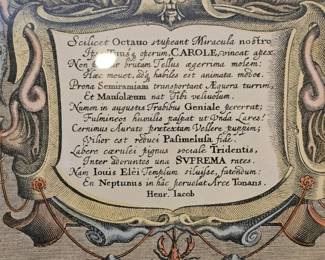 Scilicet Octauo stupeant Miracula nostro
operum CAROLE, vincat apex.
Non brutum Tellus aegerrima molem:
Haec mouet, adq, habilis est animata modos.
Prona Semiramiam transportant Æquora turrim,
Et Mausolæum nat Tibi velivolum.
Numen in augustis Trabibus Geniale pererrat;
Fulmineos humilis palpat ut Vnda Lares!
Cernimus Aurato prætextam Vellere puppim;
Vilior est reduci Pasimelusa fide.
Labere cærulei pignus sociale Tridentis,
Inter Adoruntos una SVPREMA rates.
Nam Iouis Elèi Templum siluisse, fatendum:
En Neptunus in hâc pervelat Arce Tonans.
Henr. Iacob